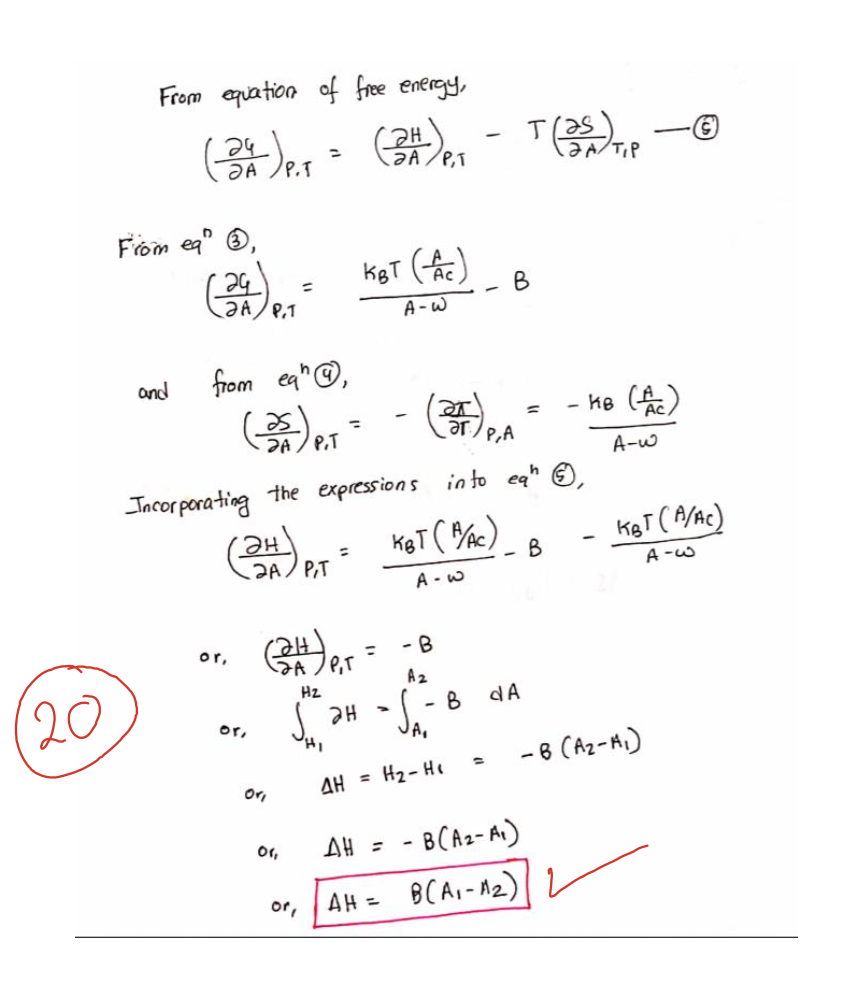 From equation of free energy,
(∂G/∂A)P,T = (∂H/∂A)P,T - T(∂S/∂A)T,P — ⑤
From eqⁿ ③,
(∂G/∂A)P,T = KBT (A/Ac) / A-ω - B
and from eqⁿ ④,
(∂S/∂A)P,T = - (∂π/∂T)P,A = - KB (A/Ac) / A-ω
Incorporating the expressions into eqⁿ ⑤,
(∂H/∂A)P,T = KBT (A/Ac) / A-ω - B - KBT (A/Ac) / A-ω
or, (∂H/∂A)P,T = - B
or, ∫H1^H2 ∂H = ∫A1^A2 - B dA
or, ΔH = H2-H1 = - B (A2-A1)
or, ΔH = - B(A2-A1)
or, ΔH = B(A1-A2)
20